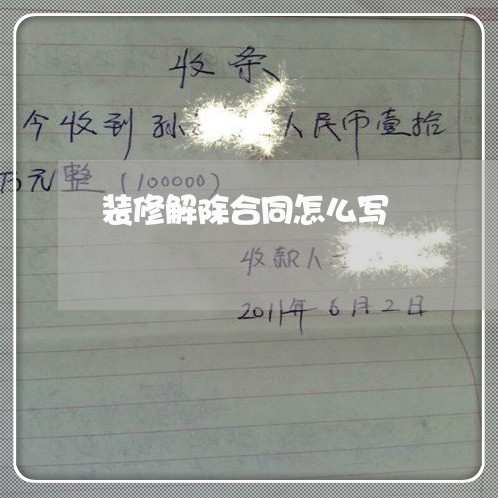 收条
今收到孙 人民币壹拾
万元整（100000）
装修解除合同怎么写
收款人
2011年6月2日